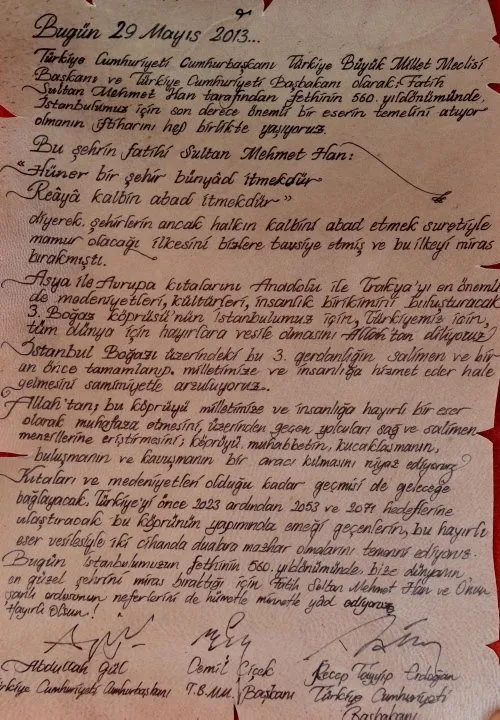 Bugün 29 Mayıs 2013...
Türkiye Cumhuriyeti Cumhurbaşkanı Türkiye Büyük Millet Meclisi
Başkanı ve Türkiye Cumhuriyeti Başbakanı olarak; Fatih
Sultan Mehmet Han tarafından fethinin 560. yıldönümünde,
İstanbulumuz için son derece önemli bir eserin temelini atıyor
olmanın iftiharını hep birlikte yaşıyoruz.
Bu şehrin fatihi Sultan Mehmet Han:
"Hüner bir şehir bünyâd itmekdür
Reâyâ kalbin abad itmekdür"
diyerek, şehirlerin ancak halkın kalbini abad etmek suretiyle
mamur olacağı ilkesini bizlere tavsiye etmiş ve bu ilkeyi miras
bırakmıştı.
Asya ile Avrupa kıtalarını Anadolu ile Trakya'yı en önemli
de medeniyetleri, kültürleri, insanlık birikimini buluşturacak
3. Boğaz köprüsü'nün İstanbulumuz için, Türkiyemiz için,
tüm dünya için hayırlara vesile olmasını Allah'tan diliyoruz
İstanbul Boğazı üzerindeki bu 3. gerdanlığın salimen ve bir
an önce tamamlanıp, milletimize ve insanlığa hizmet eder hale
gelmesini samimiyetle arzuluyoruz.
Allah'tan; bu köprüyü milletimize ve insanlığa hayırlı bir eser
olarak muhafaza etmesini, üzerinden geçen yolcuları sağ ve salimen
menzillerine eriştirmesini, köprüyü muhabbetin, kucaklaşmanın,
buluşmanın ve kavuşmanın bir aracı kılmasını niyaz ediyoruz
Kıtaları ve medeniyetleri olduğu kadar geçmişi de geleceğe
bağlayacak, Türkiye'yi önce 2023 ardından 2053 ve 2071 hedeflerine
ulaştıracak bu köprünün yapımında emeği geçenlerin, bu hayırlı
eser vesilesiyle iki cihanda dualara mazhar olmalarını temenni ediyoruz.
Bugün İstanbulumuzun fethinin 560. yıldönümünde, bize dünyanın
en güzel şehrini miras bıraktığı için Fatih Sultan Mehmet Han ve O'nun
şanlı ordusunun neferlerini de hürmetle minnetle yâd ediyoruz
Hayırlı Olsun.!
Abdullah Gül Cemil Çiçek Recep Tayyip Erdoğan
Türkiye Cumhuriyeti Cumhurbaşkanı T.B.M.M. Başkanı Türkiye Cumhuriyeti
Başbakanı